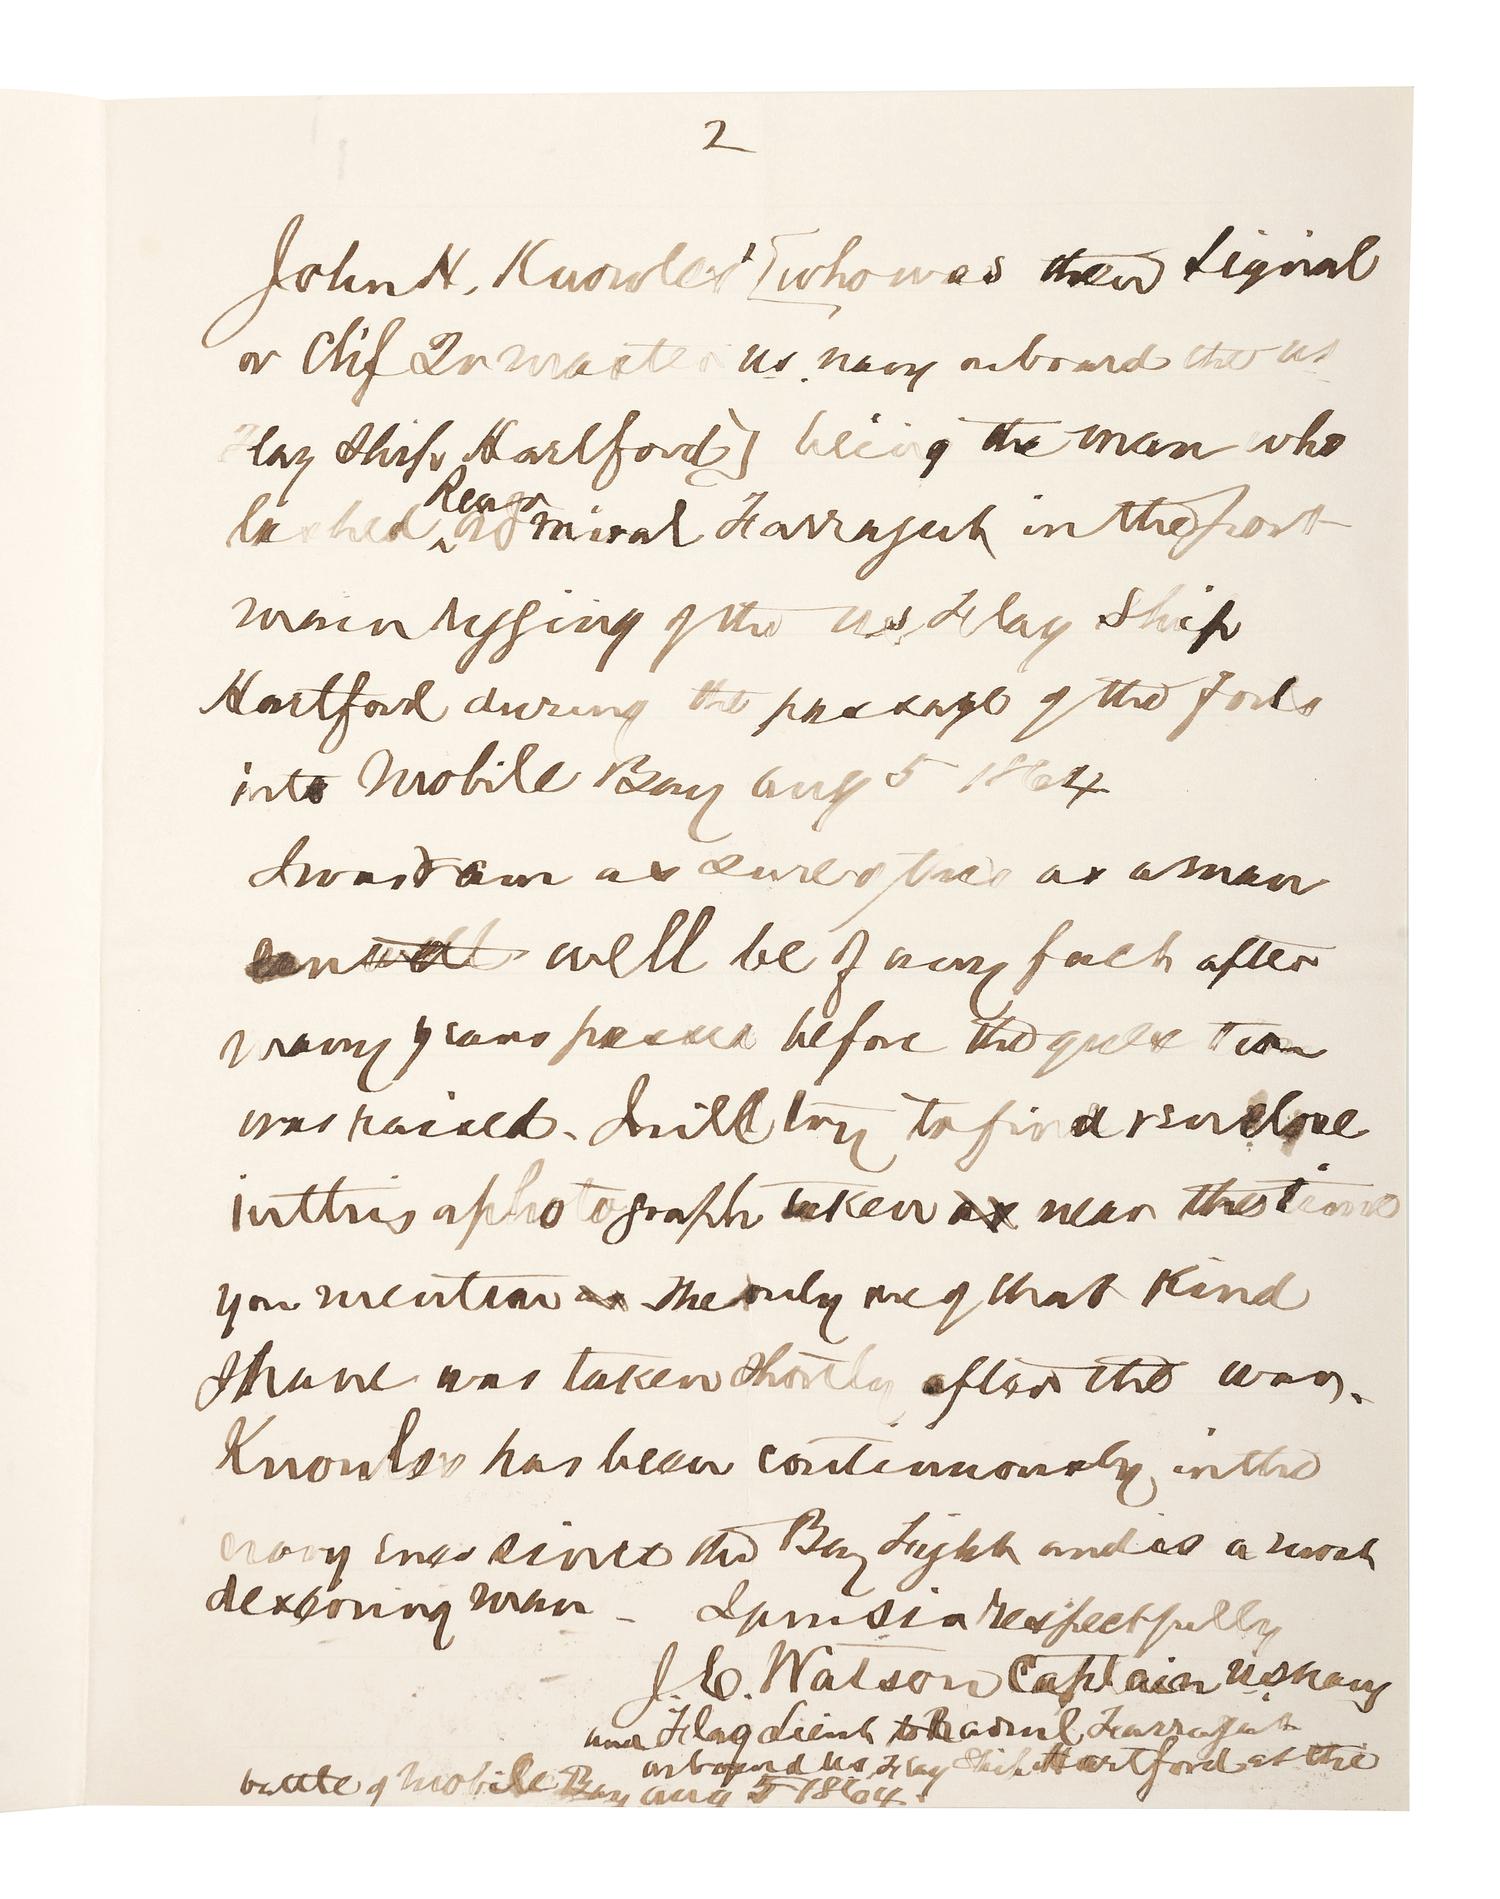 2
John H. Knowles [who was then signal
or Chif Qr master U.S. navy onboard the US
Flag Ship Hartford] being the man who
lashed Rear Admiral Farragut in the port
main rigging of the US Flag Ship
Hartford during the passage of the forts
into Mobile Bay Aug 5 1864
I was & am as sure of this as a man
can well be of any fact after
many years passed before the question
was raised. I will try to find & enclose
in this a photograph taken near the time
you mention the only one of that kind
I have was taken shortly after the war.
Knowles has been continuously in the
navy ever since the Bay Fight and is a most
deserving man – I am sir respectfully
J. C. Watson Captain US Navy
and Flag Lieut to R Adml Farragut
onboard US Flag Ship Hartford at the
battle of Mobile Bay Aug 5 1864.